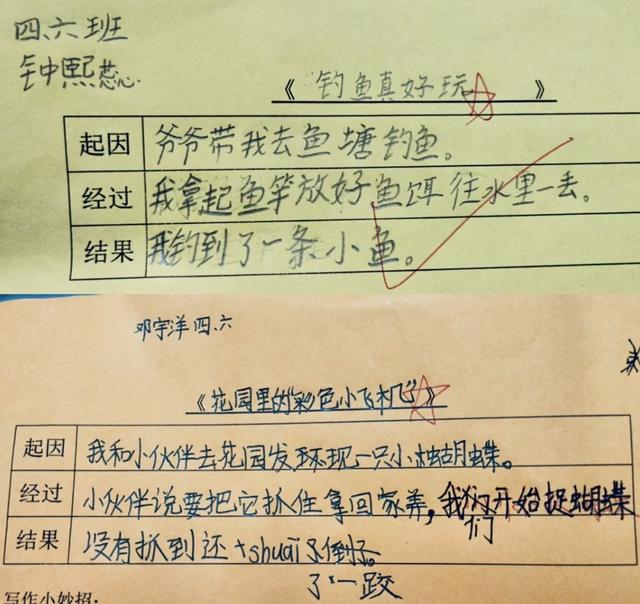 四.六班
钟熙蕊
《钓鱼真好玩》
起因 爷爷带我去鱼塘钓鱼。
经过 我拿起鱼竿放好鱼饵往水里一丢。
结果 我钓到了一条小鱼。
邓宇洋四.六
《花园里的“彩色小飞机”》
起因 我和小伙伴去花园发现一只小蝴蝶。
经过 小伙伴说要把它抓住拿回家养,我们开始捉蝴蝶
们
结果 没有抓到还shuāi倒了。
了一跤
写作小妙招: